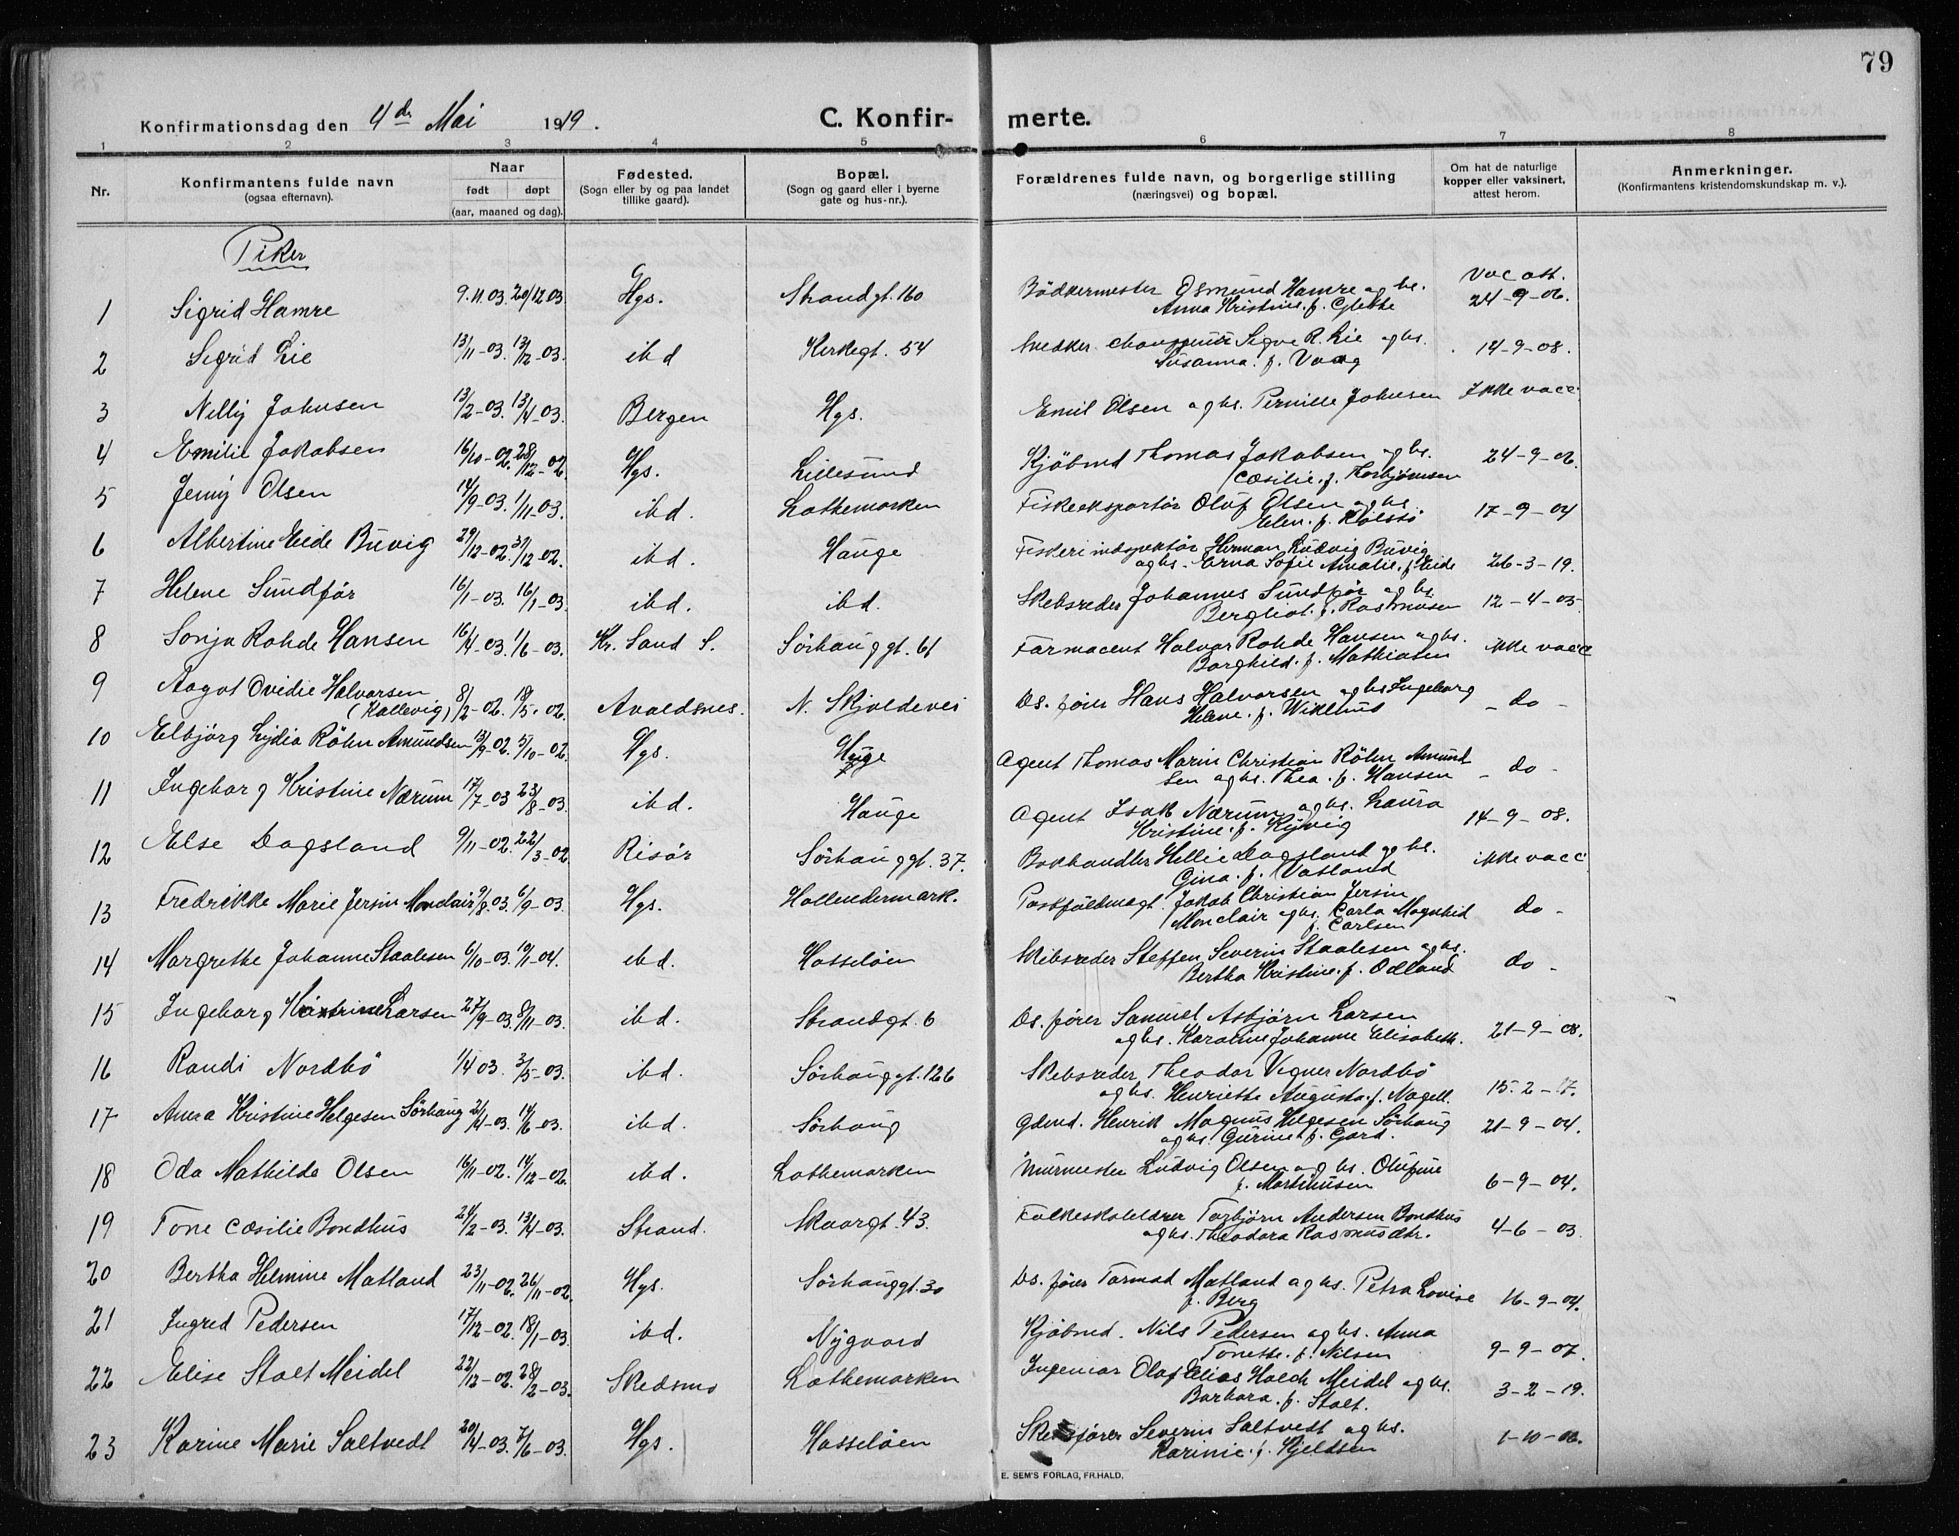 79
Konfirmationsdag den 4de Mai 1919.
C. Konfir- merte.
1 2 3 4 5 6 7 8
Nr. Konfirmantens fulde navn (ogsaa efternavn). Naar født døpt (aar, maaned og dag). Fødested. (Sogn eller by og paa landet tillike gaard). Bopæl. (Sogn og gaard eller i byerne gate og hus-nr.). Forældrenes fulde navn, og borgerlige stilling (næringsvei) og bopæl. Om hat de naturlige kopper eller vaksinert, attest herom. Anmerkninger. (Konfirmantens kristendomskundskap m. v.).
Piker
1 Sigrid Hamre 9.11.03 20/12 03 Hgs. Strandgt. 160 Bödkermester Osmund Hamre og hs. Vac att.
Anna Kristine f. Glette 24-9-06.
2 Sigrid Lie 13/11-03. 13/12-03. ibd Kirkegt. 54 Snedker Sigve R. Lie og hs. 14-9-08.
Susanna f. Vaag
3 Nelly Johnsen 13/2-03. 13/4-03. Bergen Hgs. Emil Olsen og hs. Pernille Johnsen Ikke vacc
4 Emilie Jakobsen 16/10-02. 28/12-02. Hgs. Lillesund Kjöbmd Thomas Jakobsen og hs. 24-9-06.
Cæsilie f. Torbjörnsen
5 Jenny Olsen 14/9-03. 1/11-03. ibd. Lothemarken Fiskeeksportör Oluf Olsen og hs. 17-9-04
Elen f. Kolstö
6 Albertine Eide Buvig 29/12-02. 31/12-02. ibd. Hauge Fiskeriinspektör Herman Ludvig Buvig
og hs. Erna Sofie Amalie f. Eide 26-3-19.
7 Helene Sundför 16/1-03. 16/1-03. ibd. ibd. Skibsreder Johannes Sundför og hs. 12-4-05
Bergliot f. Rasmusen
8 Sonja Rohde Hansen 16/4-03. 1/6-03. Kr. Sand S. Sörhauggt. 61 Farmacent Halvar Rohde Hansen og hs. ikke vacc
Borghild f. Mathiasen
9 Aagot Ovidie Halvorsen (Kallevig) 8/2-02. 18/5-02. Avaldsnes. N. Skjoldevei Ds. förer Hans Halvorsen og hs Ingeborg - do -
Helene f. Wiklund
10 Elbjörg Lydia Röhn Amundsen 13/9-02. 5/10-02. Hgs. Hauge Agent Thomas Marin Christian Röhn Amund
sen og hs. Thea f. Hansen - do -
11 Ingeborg Kristine Nærum 17/7-03 23/8-03. ibd. Hauge Agent Isak Nærum og hs. Laura
Kristine f. Kyvig 14-9-08.
12 Else Dagsland 9/11-02. 22/3-02 Risör Sörhauggt. 37. Bokhandler Hellie Dagsland og hs. ikke vacc
Gina f. Vatland
13 Fredrikke Marie Jersin Monclair 9/8.03. 6/9-03. Hgs. Hollendermark. Postfuldmægt. Jakob Christian Jersin
Monclair og hs. Carla Magnhild f. Carlsen do -
14 Margrethe Johanne Staalesen 6/10-03. 10/1-04. ibd. Hasselöen Skibsreder Steffen Severin Staalesen og hs.
Bertha Kristine f. Odland do -
15 Ingeborg Katrine Larsen 27/9-03. 8/11-03. ibd. Strandgt. 6 Ds. förer Samuel Asbjörn Larsen
og hs. Karoline Johanne Elisabeth. 21-9-08.
16 Randi Nordbö 1/4 03. 3/5-03. ibd. Sörhauggt. 126 Skibsreder Theodor Vigner Nordbö
og hs. Henriette Augusta f. Nagell. 15-2-17.
17 Anna Kristine Helgesen Sörhaug 2/4-03. 14/6-03. ibd. Sörhaug Gdmd. Henrik Magnus Helgesen Sörhaug
og hs. Gurine f. Gard. 21-9-04.
18 Oda Mathilde Olsen 16/11-02. 14/12-02. ibd. Lothemarken Murmester Ludvig Olsen og hs. Olufine
f. Martinusen 6-9-04.
19 Tone Cæsilie Bondhus 24/2-03. 13/4-03. Strand. Skaargt. 43. Folkeskolelærer Torbjörn Andersen Bondhus
og hs. Theodora Rasmusdtr. 4-6-03
20 Bertha Helmine Matland 23/11-02. 26/11-02. Hgs. Sörhauggt. 30 Ds. förer Tormod Matland og hs. Petra Lovise
f. Berg 16-9-04.
21 Ingrid Pedersen 17/12-02. 18/1-03. ibd. Nygaard Kjöbmd. Nils Pedersen og hs. Anna
Tonette f. Nilsen 9-9-07.
22 Elise Stolt Meidel 22/12-02. 28/2-03. Skedsmo Lothemarken Ingeniør Olaf Elias Holck Meidel og hs.
Barbara f. Stolt. 3-2-19.
23 Karine Marie Saltvedt 20/4-03. 7/6-03. Hgs. Hasselöen Skibsförer Severin Saltvedt og hs.
Karine f. Kjeldsen 1-10-06.
E. SEM'S FORLAG, FR.HALD.